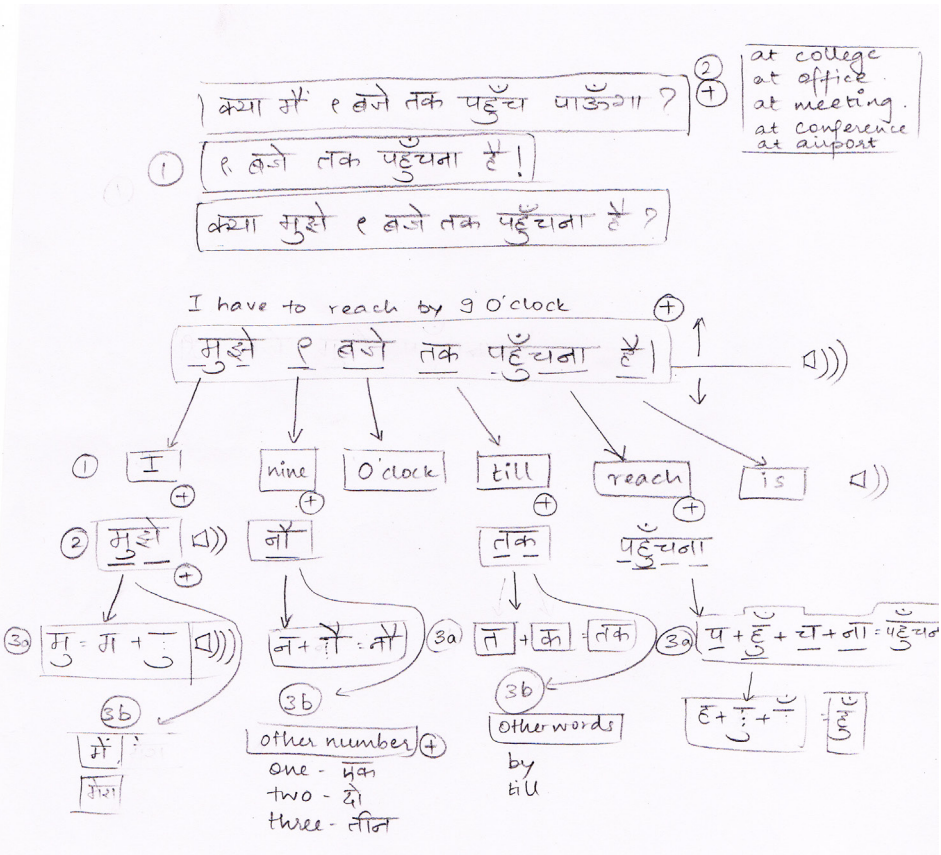 क्या मैं ९ बजे तक पहुँच पाऊँगा ?
② +
at college
at office.
at meeting.
at conference
at airport
① ९ बजे तक पहुँचना है!
क्या मुझे ९ बजे तक पहुँचना है ?
I have to reach by 9 O'clock +
मुझे ९ बजे तक पहुँचना है।
① I + nine + O'clock till + reach + is
② मुझे + नौ तक पहुँचना
3a मु = म + ु
न + ौ = नौ
3a त + क = तक
3a प + हुँ + च + ना = पहुँचना
ह + ु + ँ = हुँ
3b
मैं
मेरा
3b
other number +
one - एक
two - दो
three - तीन
3b
other words
by
till